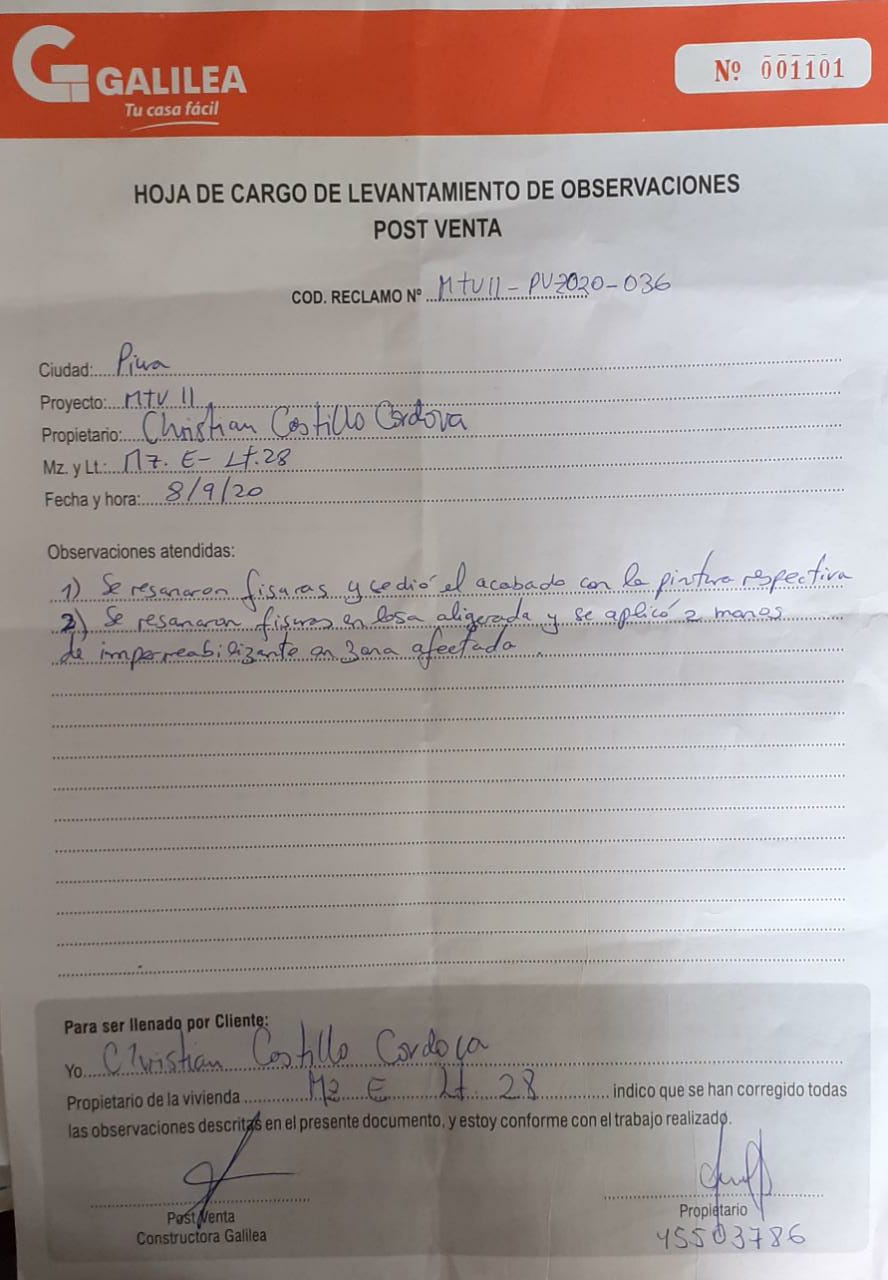 GALILEA
Tu casa fácil
Nº 001101
HOJA DE CARGO DE LEVANTAMIENTO DE OBSERVACIONES
POST VENTA
COD. RECLAMO Nº MTVII - PV-2020-036
Ciudad: Piura
Proyecto: MTV II
Propietario: Christian Castillo Cordova
Mz. y Lt.: Mz. E- Lt.28
Fecha y hora: 8/9/20
Observaciones atendidas:
1) Se resanaron fisuras y se dió el acabado con la pintura respectiva
2) Se resanaron fisuras en losa aligerada y se aplicó 2 manos
de impermeabilizante en zona afectada.
Para ser llenado por Cliente:
Yo Christian Castillo Cordova
Propietario de la vivienda Mz E Lt. 28 indico que se han corregido todas
las observaciones descritas en el presente documento, y estoy conforme con el trabajo realizado.
Post Venta
Constructora Galilea
Propietario
45503786